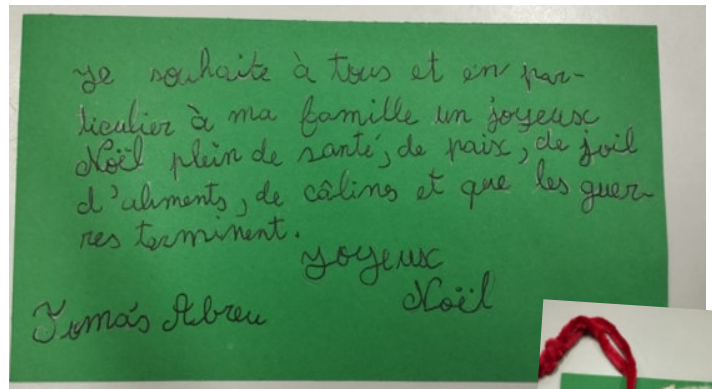 Je souhaite à tous et en par-
ticulier à ma famille un joyeux
Noël plein de santé, de paix, de joil
d'aliments, de câlins et que les guer-
res terminent.
Joyeux
Noël
Tomás Abreu